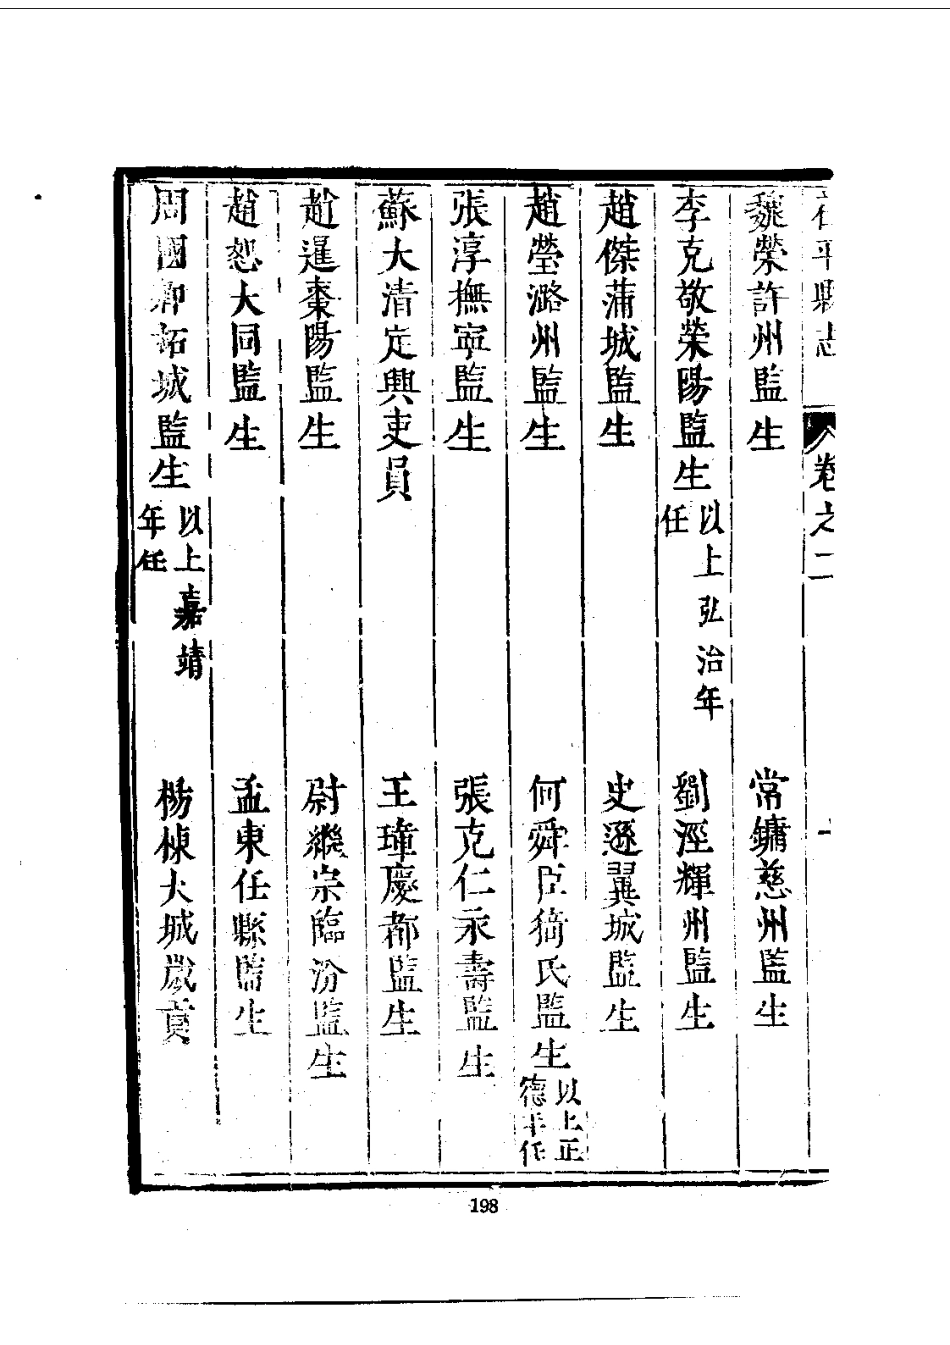 茌平縣志
卷之二
魏榮許州監生 常鏞慈州監生
李克敬榮陽監生 以上弘治年任 劉淫輝州監生
趙傑蒲城監生 史遜翼城監生
趙瑩潞州監生 何舜臣猗氏監生 以上正德年任
張淳撫寧監生 張克仁永壽監生
蘇大清定興吏員 王璋慶都監生
趙暹棗陽監生 尉繼宗臨汾監生
趙恕大同監生 孟東任縣監生
周國卿柘城監生 以上嘉靖年任 楊棟大城歲貢
198